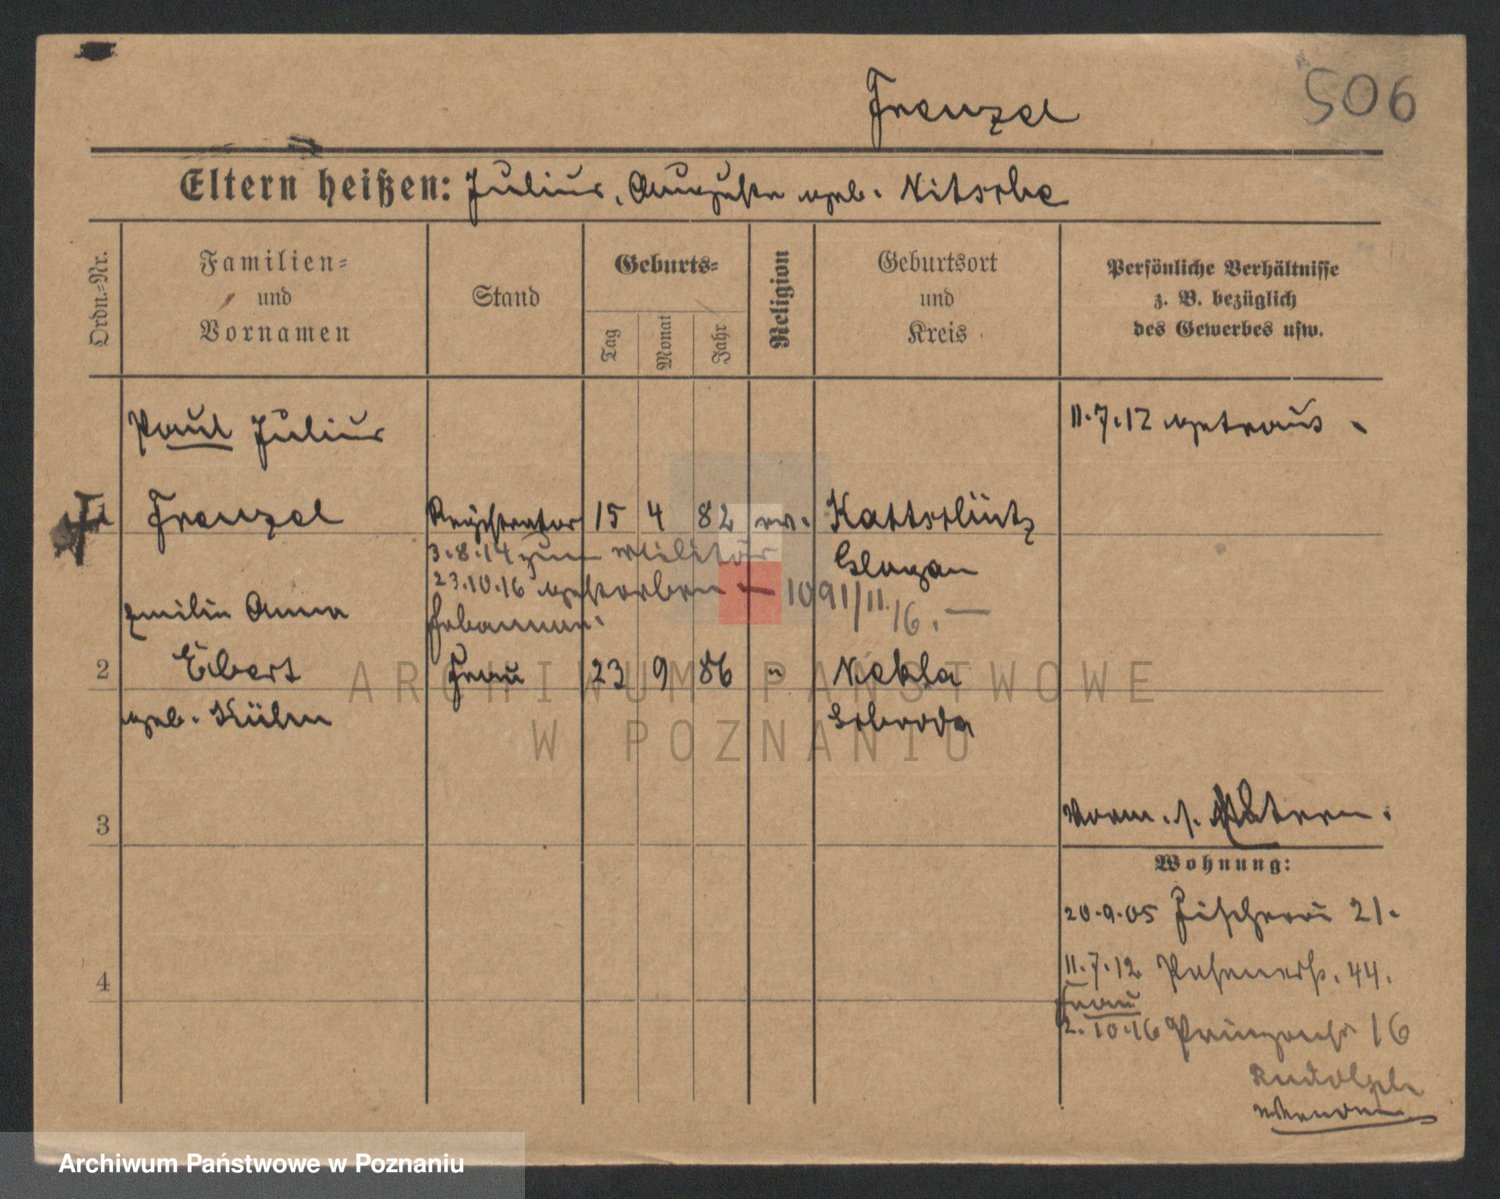 506
Frenzel
Eltern heißen: Julius, Auguste geb. Nitsche
Ordn.-Nr.
Familien-
und
Vornamen
Stand
Geburts-
Tag
Monat
Jahr
Religion
Geburtsort
und
Kreis
Persönliche Verhältnisse
z. B. bezüglich
des Gewerbes usw.
Paul Julius
11.7.12 getraut
Frenzel Registrator 15 4 82 ev.
3.8.14 zum Militär
Glogau
23.10.16 gestorben — 1091/11.16. —
Emilie Anna
2 Frau 23 9 86 " Nekla
geb. Kühn
Schroda
3
Vorm. s. Eltern.
Wohnung:
20.9.05 Fischerei 21.
4
11.7.12 Posenerstr. 44.
Frau
2.10.16 Prinzenstr 16
ARCHIWUM PAŃSTWOWE
W POZNANIU
Archiwum Państwowe w Poznaniu